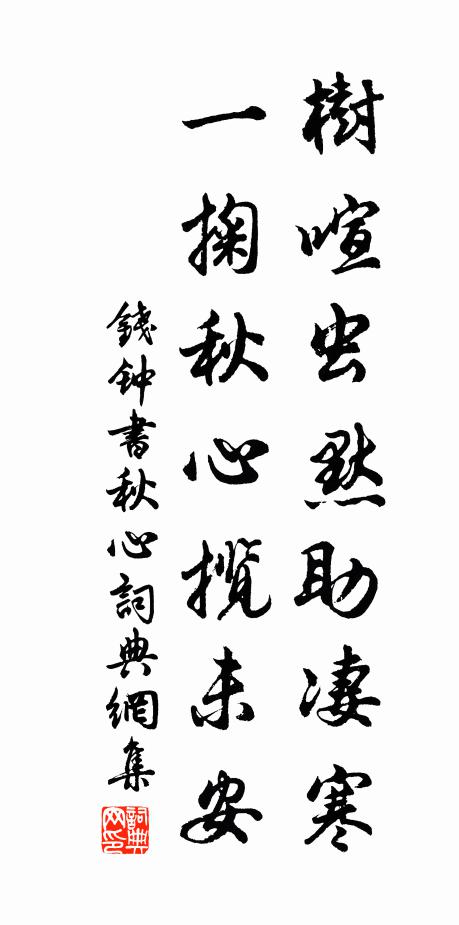 樹喧虫默助凄寒
一掬秋心攬未安
錢钟書秋心詞典網集
詞典网印